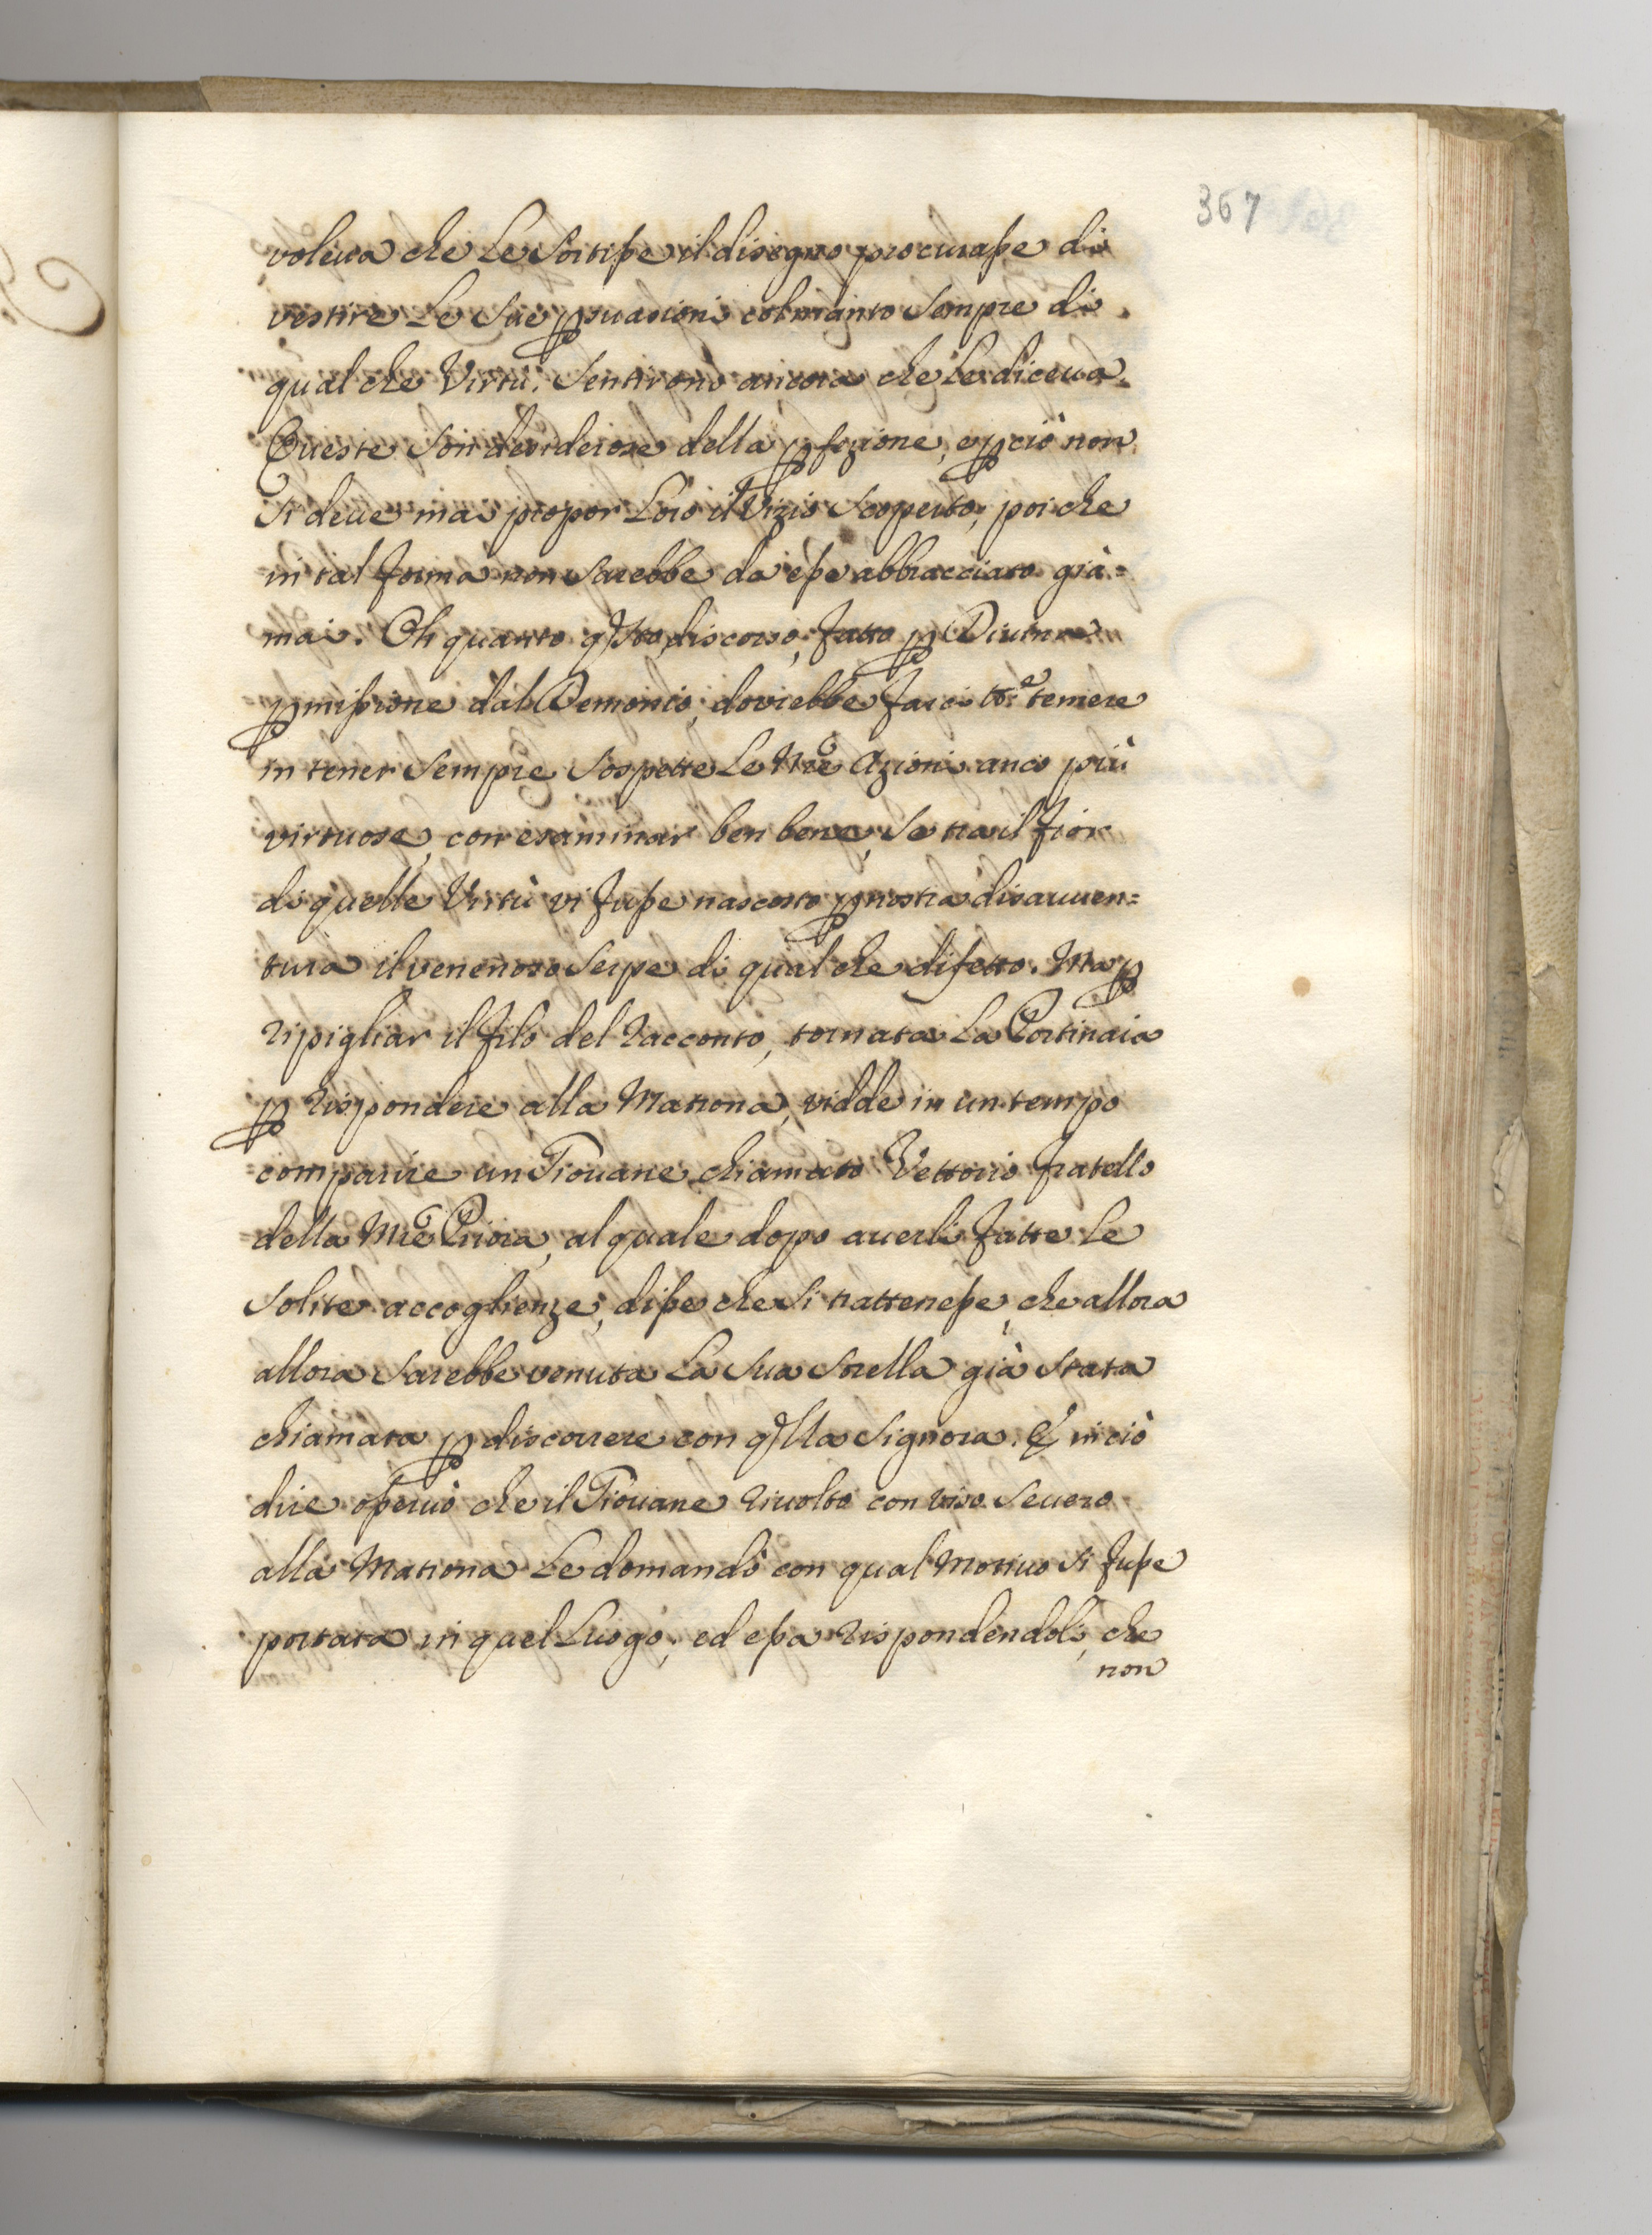 367
voleua che Le Sortisse il disegno procurasse di
vestire Le Sue ꝑsuasioni col manto Sempre di
qual che Virtù. Sentirono ancora che Le diceua
Queste Son desiderose della ꝑfezione, e ꝑciò non
Si deue mai propor Loro il Vizio Scoperto, poi che
in tal forma non Sarebbe da esse abbracciato già=
mai. Oh quanto qsto discorso, fatto ꝑ Diuina
ꝑmissione dal Demonio, dovrebbe farci temere
in tener Sempre Sospette Le Nrē Azioni anco più
virtuose, con esaminar ben bene, Se tra il fior
di quelle Virtù vi fusse nascosto ꝑ nostra disauuen=
tura il venenoso Serpe di qual che difetto. Ma ꝑ
ripigliar il filo del racconto, tornata La Portinaia
ꝑ rispondere alla Matrona, vidde in un tempo
comparire un Giouane chiamato Vettorio fratello
della Mrē Priora, al quale dopo auerli fatte Le
Solite accoglienze, disse che Si trattenesse, che allora
allora Sarebbe venuta La Sua Sorella già Stata
chiamata ꝑ discorrere con qlla Signora. E in ciò
dire osseruò che il Giouane riuolto con viso Seuero
alla Matrona Le domandò con qual Motiuo Si fusse
portata in quel Luogo, ed essa rispondendoli, che
non